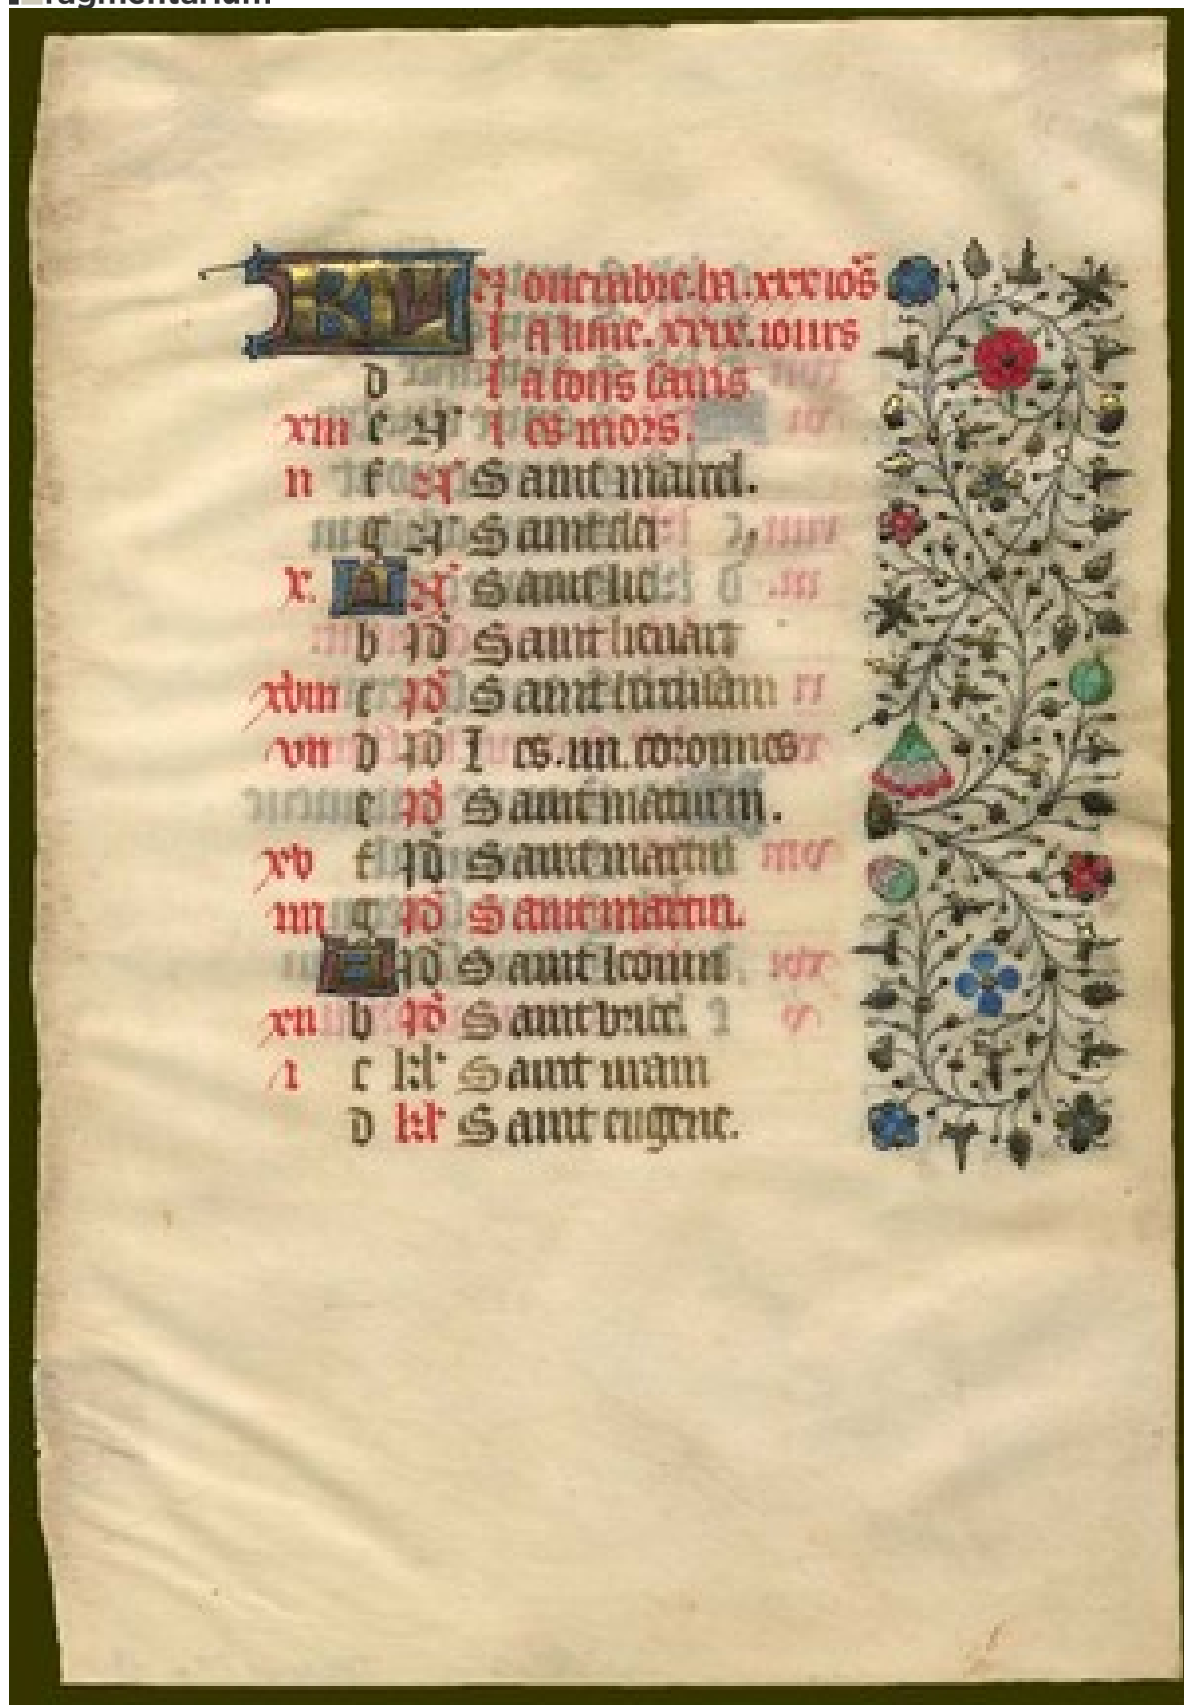 fragmentarium
KL Nouembre. la. xxx ios
La lune. xxix. iours
d La tous sains
xiii e N' Les mors.
ii f N' Saint marcel.
g N' Saint eloi
x. A N' Saint lie
b id Saint lienart
xviii c id Saint
vii d id Les. iiii. coronnes
e id Saint maturin.
xv f id Saint martin
iiii g id Saint martin.
A id Saint
xii b id Saint brice.
i c kl' Saint
d kl' Saint eugene.